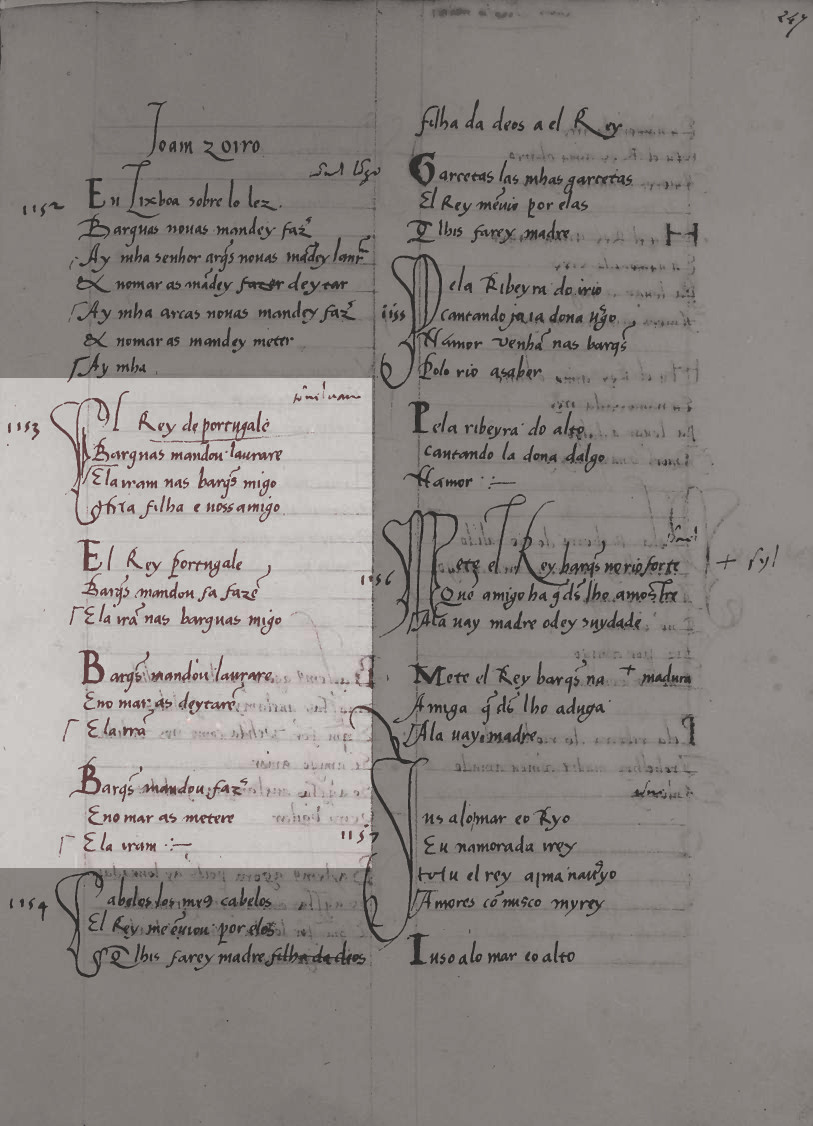 247
Joam Zoiro
1152
En Lixboa sobre lo lez
Barquas nouas mandey faz
Ay mha senhor arqs nouas mãdey laur
Ex nomar as mãdey fazer deytar
Ay mha arcas nouas mandey faz
Ex nomar as mandey meter
Ay mha
1153
El Rey de portugale
Barquas mandou laurare
Ela iram nas barqs migo
filha e nossamigo
El Rey portugale
Barqs mandou fazer
Ela irã nas barquas migo
Barqs mandou laurare
Eno mar as deytare
Ela irã
Barqs mandou faz
Eno mar as metere
Ela iram :~
1154
Cabelos los me9 cabelos
El Rey me ẽuiou por elos
Q lhis farey madre filha da deos
filha da deos a el Rey
Garcetas las mhas garcetas
El Rey mẽuio por elas
Q lhis farey madre
1155
Pela Ribeyra do irio
Cantando ia la dona
Namor venhã nas barqs
Polo rio a sabor
Pela ribeyra do alto
Cantando la dona dalgo
Namor :~
1156
Mete el Rey barqs no rio forte
Quẽ amigo ha q ds lho amostre
Ala uay madre odey suydade
Mete el Rey barqs na + madura
Amiga q ds lho aduga
Ala uay madre
1157
Jus alo mar eo Ryo
Eu namorada irey
el rey arma nauyo
Amores cõ uusco myrey
Iuso alo mar eo alto